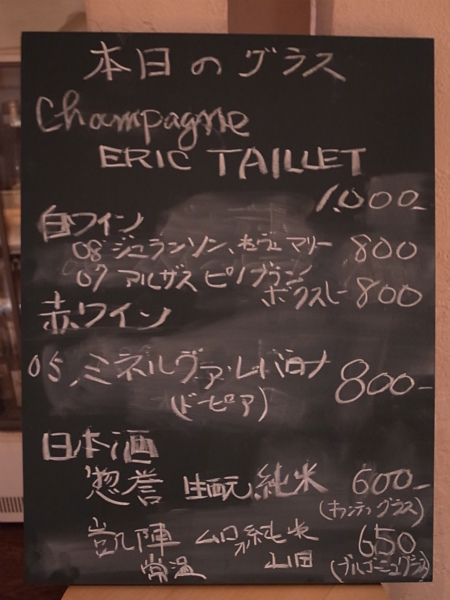 本日のグラス
Champagne
ERIC TAILLET
1,000-
白ワイン
08 ジュランソン, キュヴェ マリー 800
07 アルザス ピノブラン
ボクスレー 800
赤ワイン
05, ミネルヴァ・レバロナ 800-
(ドーピア)
日本酒
惣誉 生酛純米 600-
(キャンティグラス)
凱陣 純米 650
常温 山田 (ブルゴーニュグラス)